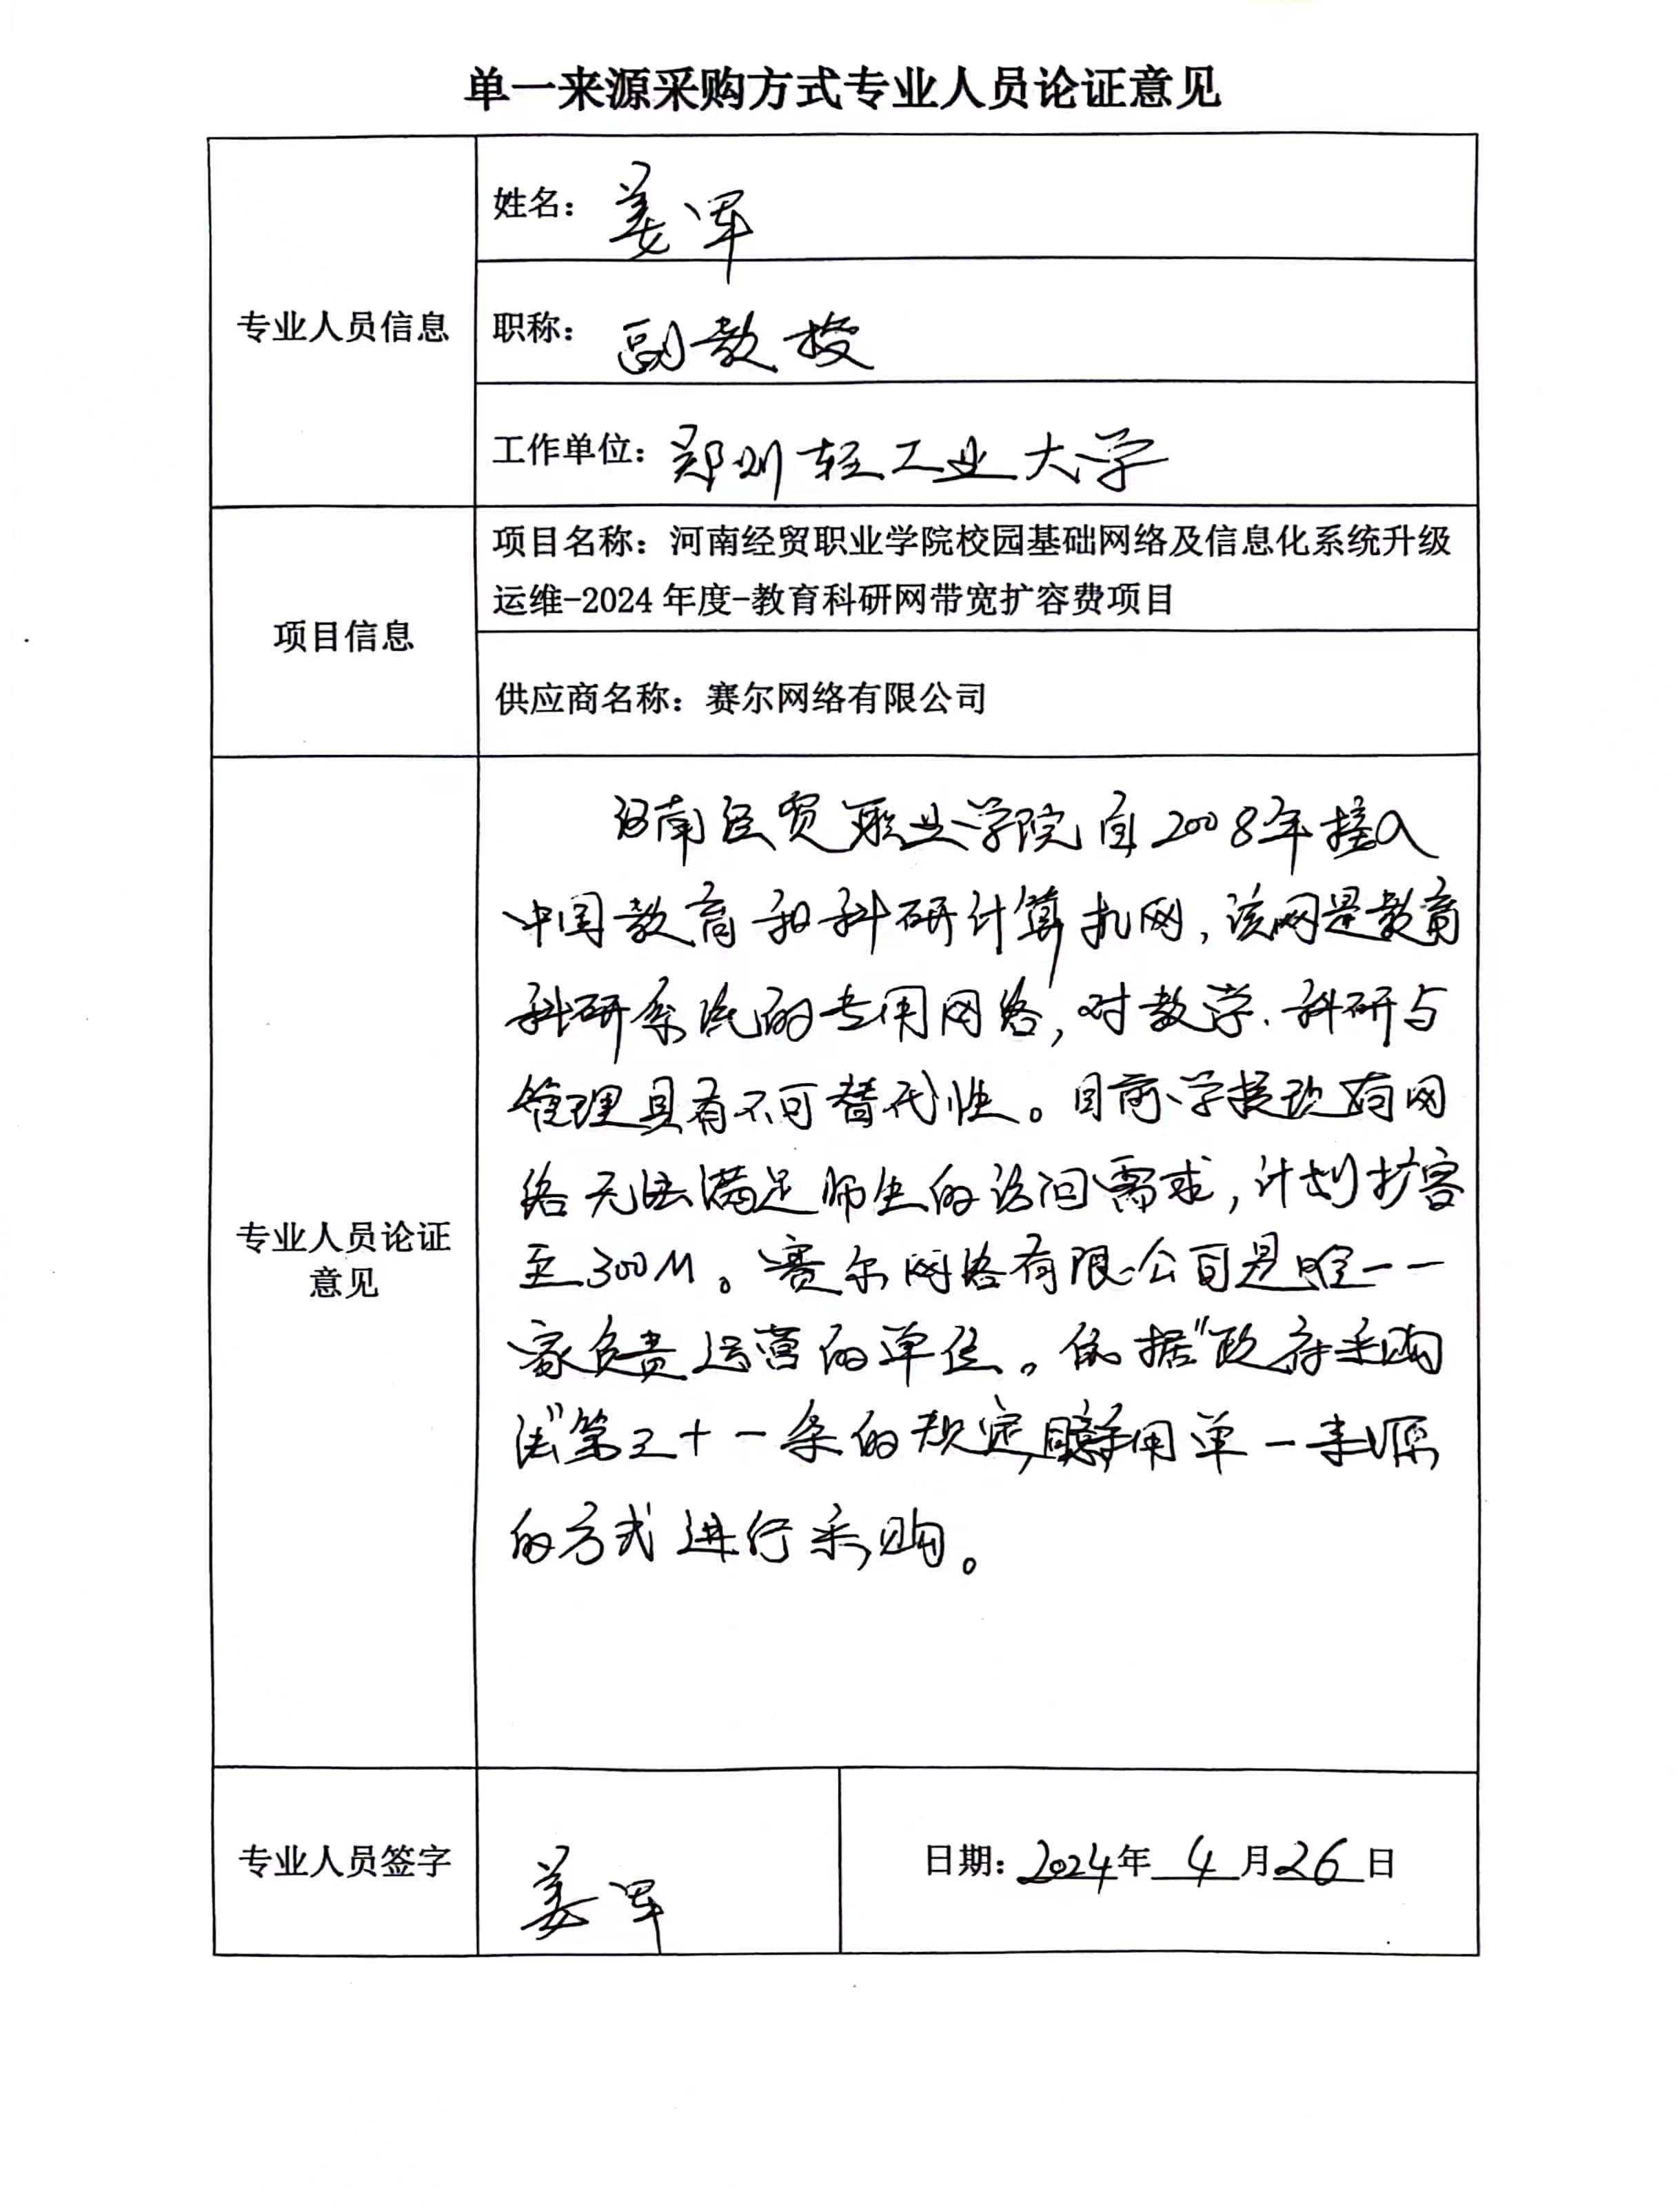 单一来源采购方式专业人员论证意见
专业人员信息
姓名：姜军
职称：副教授
工作单位：郑州轻工业大学
项目信息
项目名称：河南经贸职业学院校园基础网络及信息化系统升级
运维-2024年度-教育科研网带宽扩容费项目
供应商名称：赛尔网络有限公司
专业人员论证
意见
河南经贸职业学院自2008年接入
中国教育和科研计算机网，该网是教育
科研系统的专用网络，对教学、科研与
管理具有不可替代性。目前学校现有网
络无法满足师生的访问需求，计划扩容
至300M。赛尔网络有限公司是唯一一
家负责运营的单位。依据"政府采购
法"第三十一条的规定，用单一来源
的方式进行采购。
专业人员签字
姜军
日期：2024年4月26日